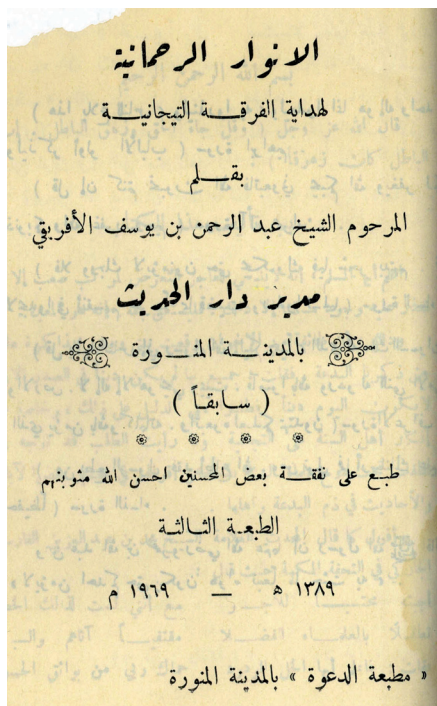 الانوار الرحمانية
لهداية الفرقة التيجانية
بقلم
المرحوم الشيخ عبد الرحمن بن يوسف الأفريقي
مدير دار الحديث
بالمدينة المنورة
( سابقاً )
طبع على نفقة بعض المحسنين احسن الله مثوبتهم
الطبعة الثالثة
١٣٨٩ هـ — ١٩٦٩ م
« مطبعة الدعوة » بالمدينة المنورة